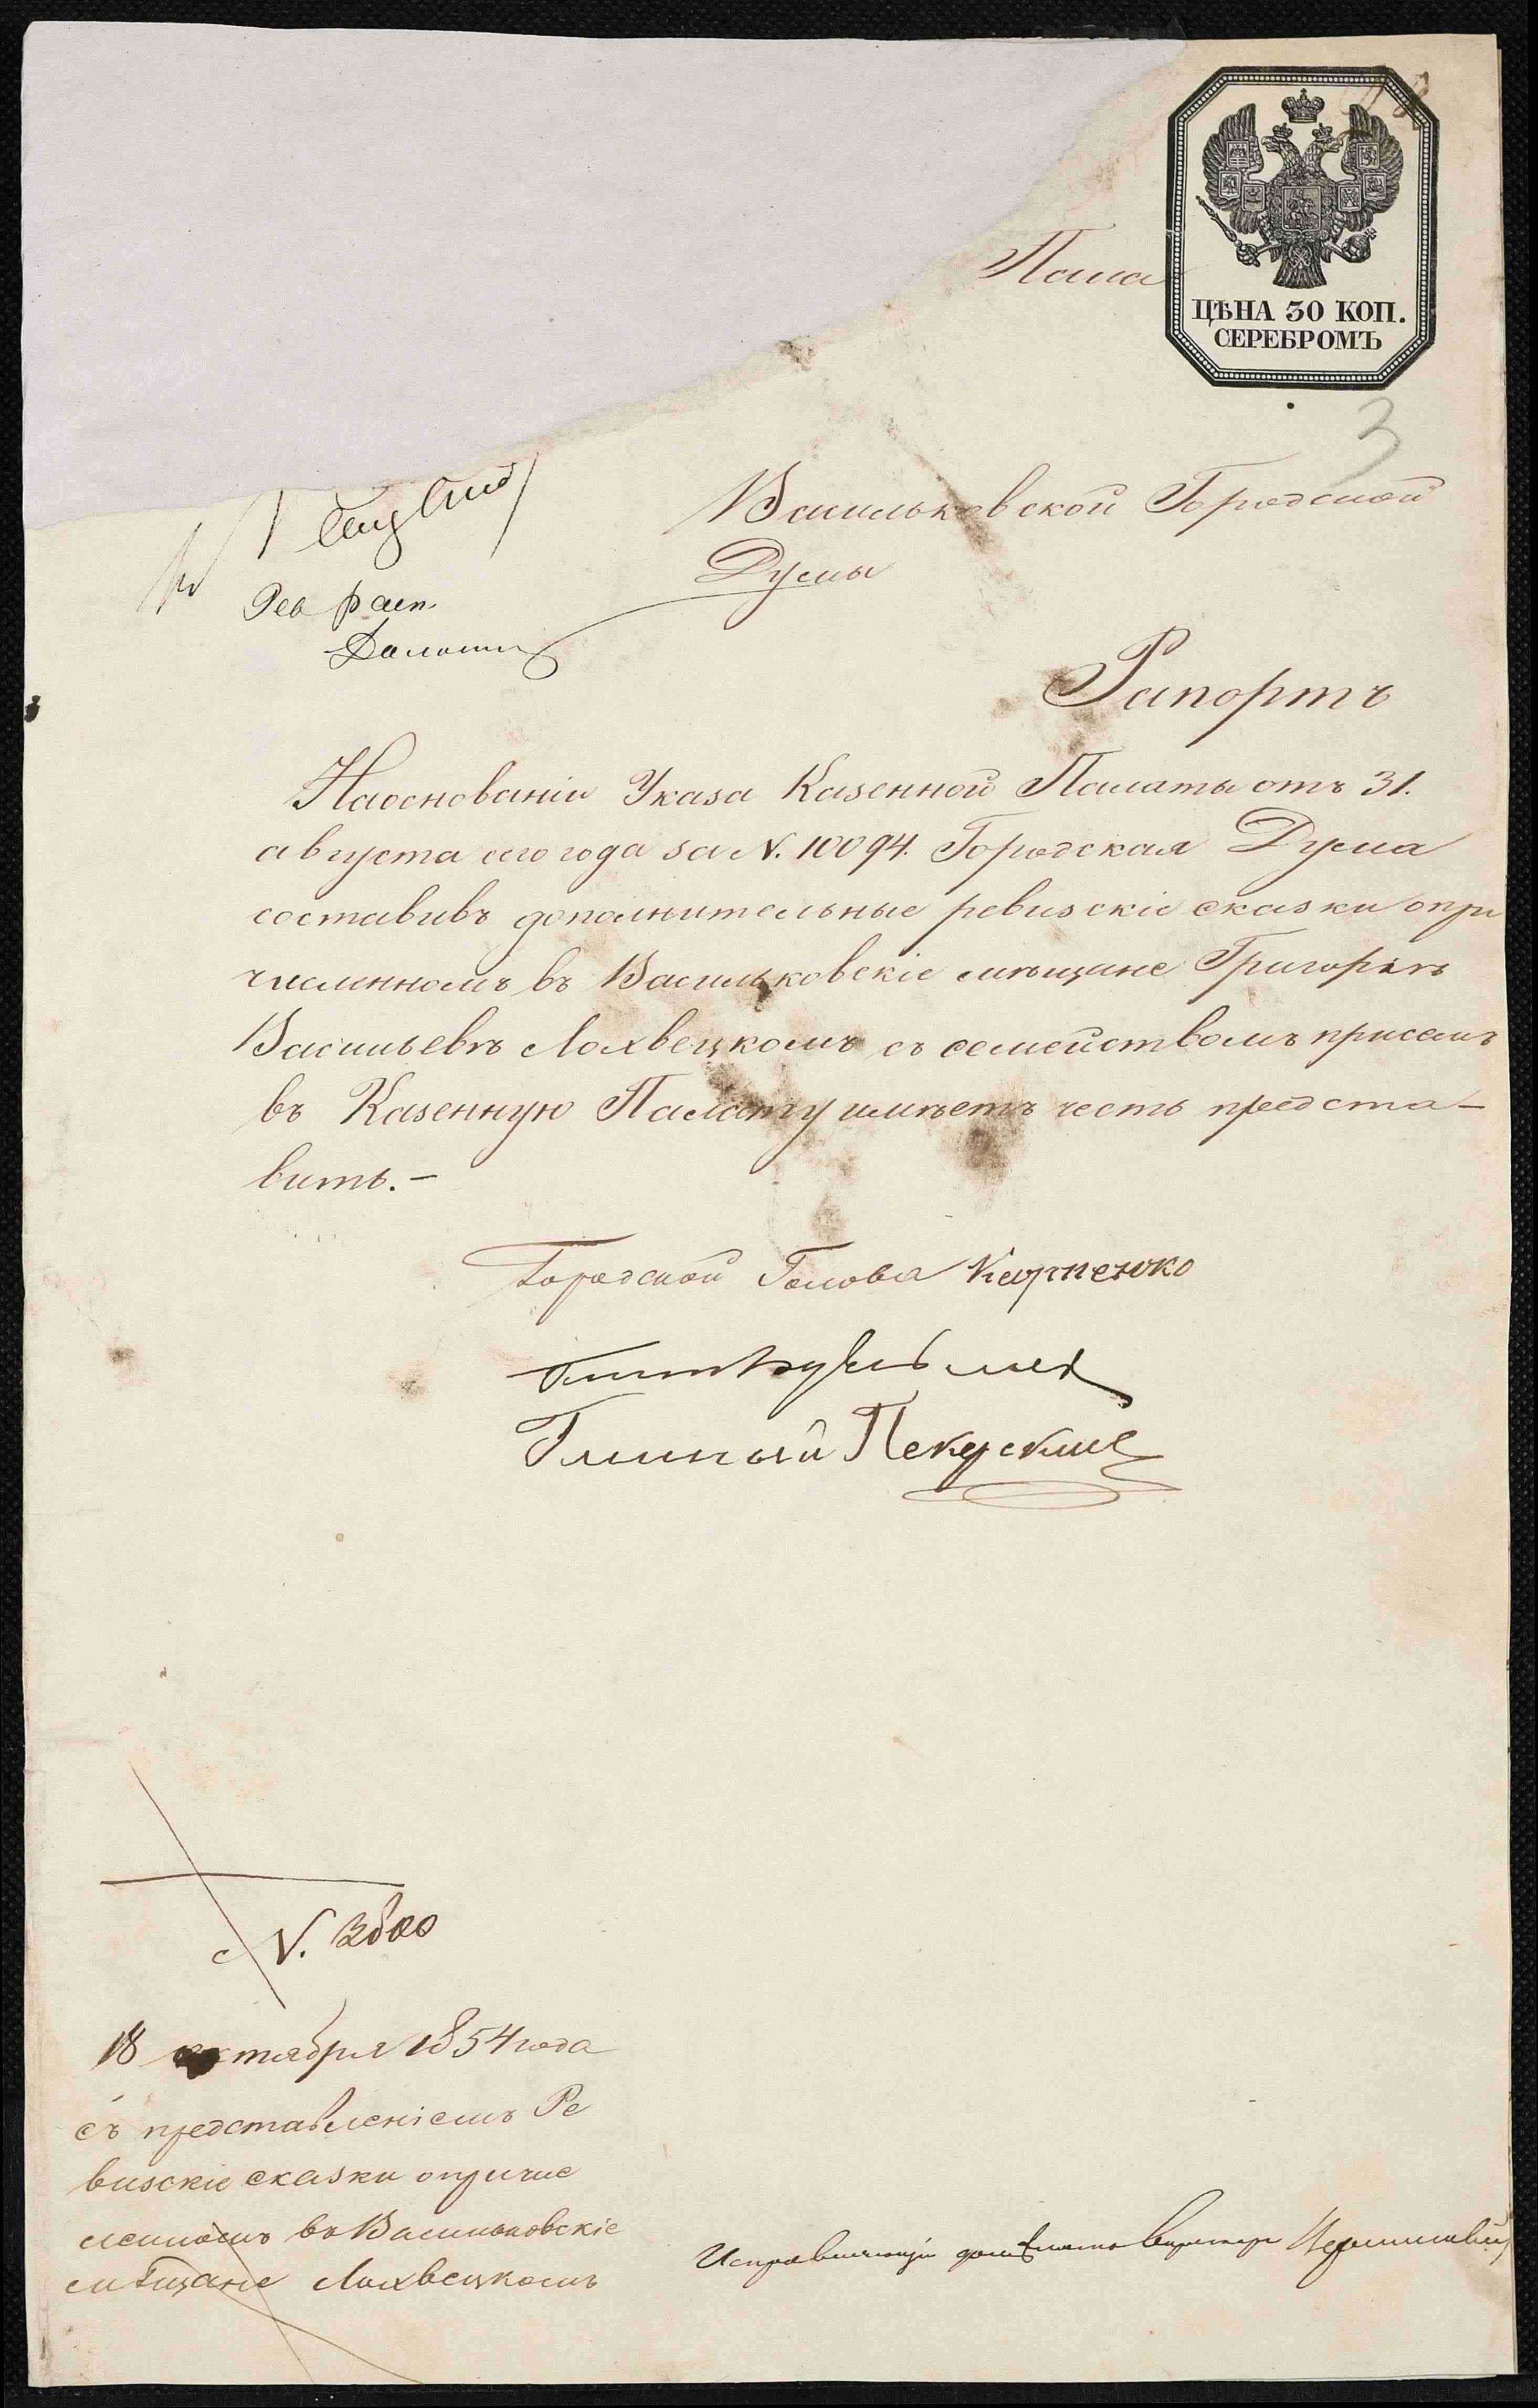 Пала
ЦѢНА 30 КОП.
СЕРЕБРОМЪ
3
Васильковской Городской
Думы
Рев расп.
Рапортъ
Наоснованіи Указа Казенной Палаты отъ 31.
августа сего года за N. 10094. Городская Дума
составивъ дополнительные ревизскіе сказки опри
численномъ въ Васильковскіе мѣщане Григорьѣ
Васильевѣ Лохвецкомъ съ семействомъ присемъ
въ Казенную Палату имѣетъ честь предста-
вить.-
Городской Голова Карпенко
Гласный
N.
18 октября 1854 года
съ представленіемъ Ре
визскіе сказки опричис
ленномъ въ Васильковскіе
мѣщане Лохвецкомъ
Исправляющій должность